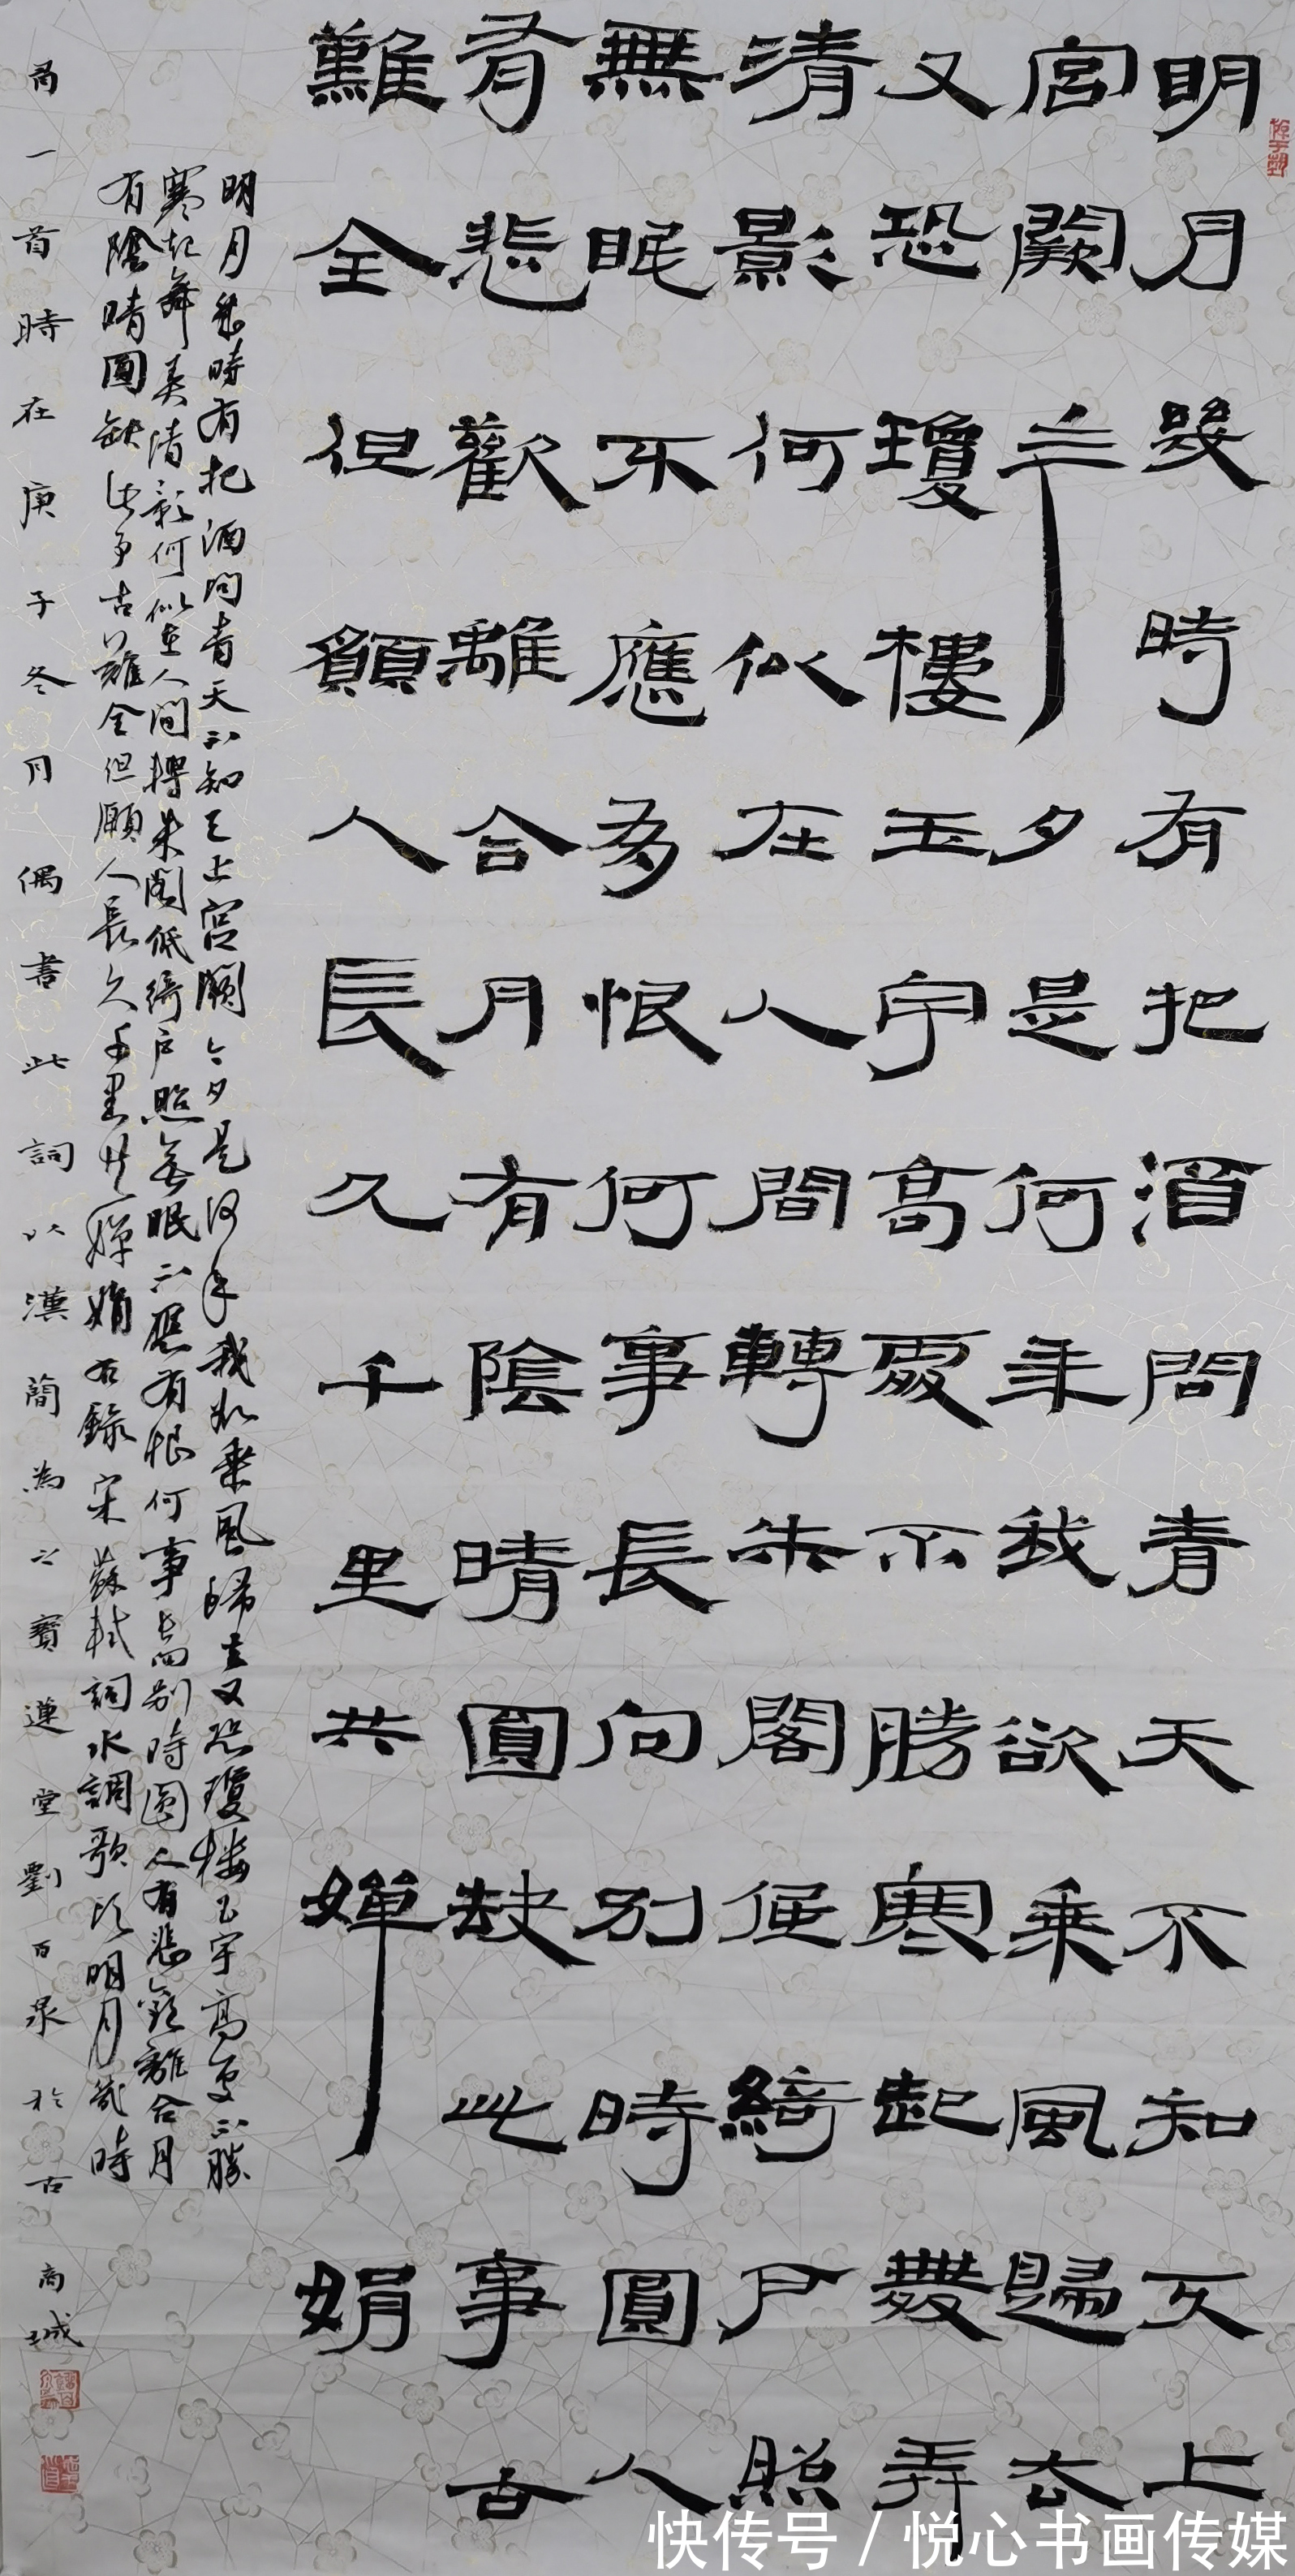 明月幾時有把酒問青天不知天上
宮闕今夕是何年我欲乘風歸去
又恐瓊樓玉宇高處不勝寒起舞弄
清影何似在人間轉朱閣低綺戶照
無眠不應有恨何事長向別時圓人
有悲歡離合月有陰晴圓缺此事古
難全但願人長久千里共嬋娟
明月幾時有把酒問青天不知天上宮闕今夕是何年我欲乘風歸去又恐瓊樓玉宇高處不勝
寒起舞弄清影何似在人間轉朱閣低綺戶照無眠不應有恨何事長向別時圓人有悲歡離合月
有陰晴圓缺此事古難全但願人長久千里共嬋娟右錄宋蘇軾詞水調歌頭明月幾時
有一首時在庚子冬月偶書此詞以漢簡為之寶蓮堂劉百泉於古商城
快传号/悦心书画传媒